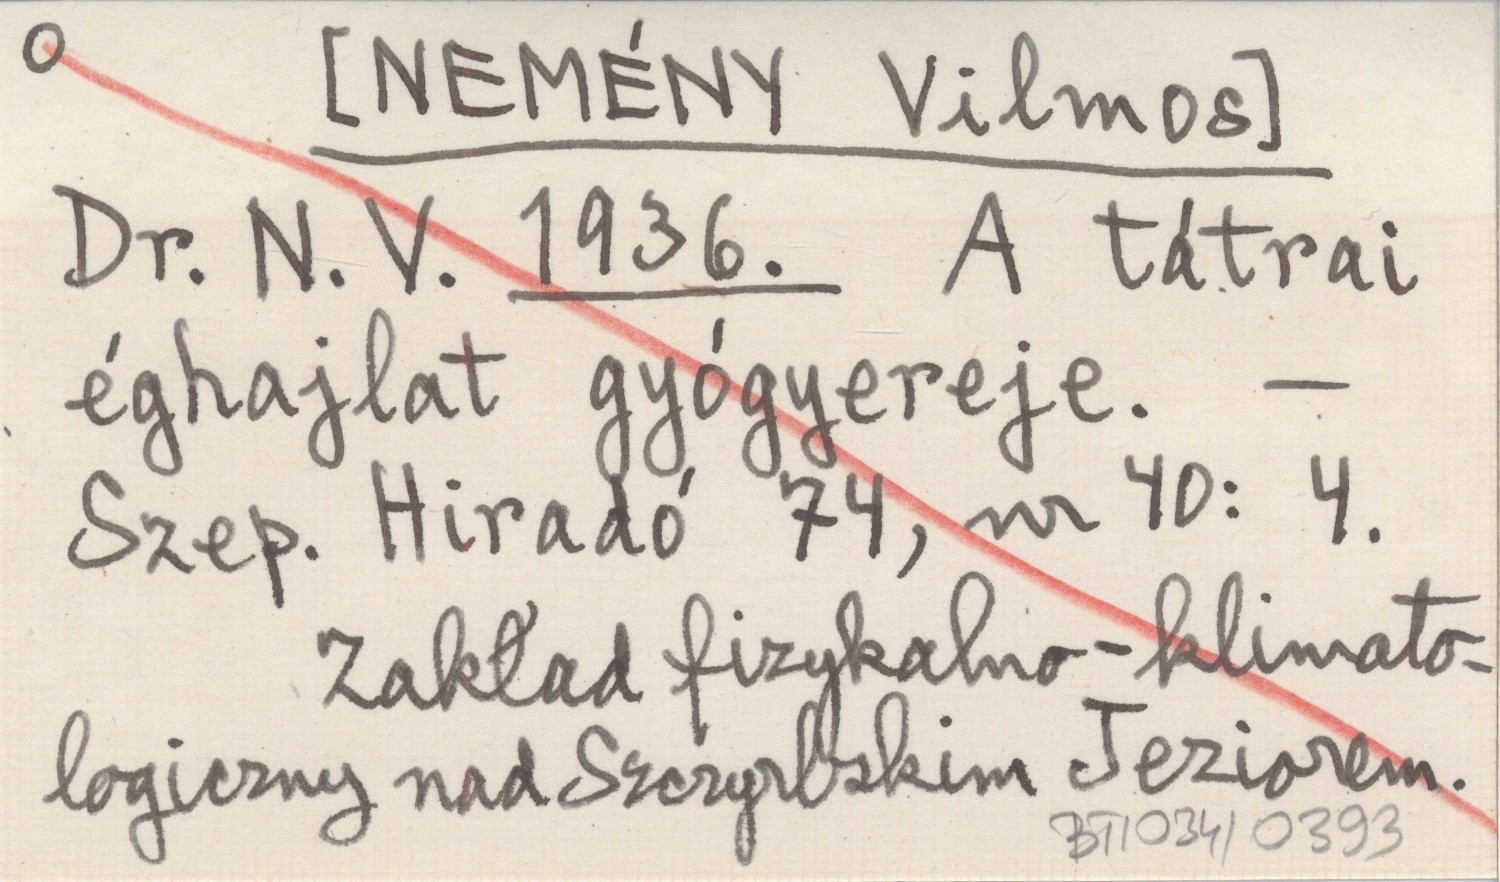 O [NEMÉNY Vilmos]
Dr. N. V. 1936. A tátrai
éghajlat gyógyereje. —
Szep. Hiradó 74, nr 40: 4.
Zakład fizykalno-klimato-
logiczny nad Szczyrbskim Jeziorem.
BT/034/0393